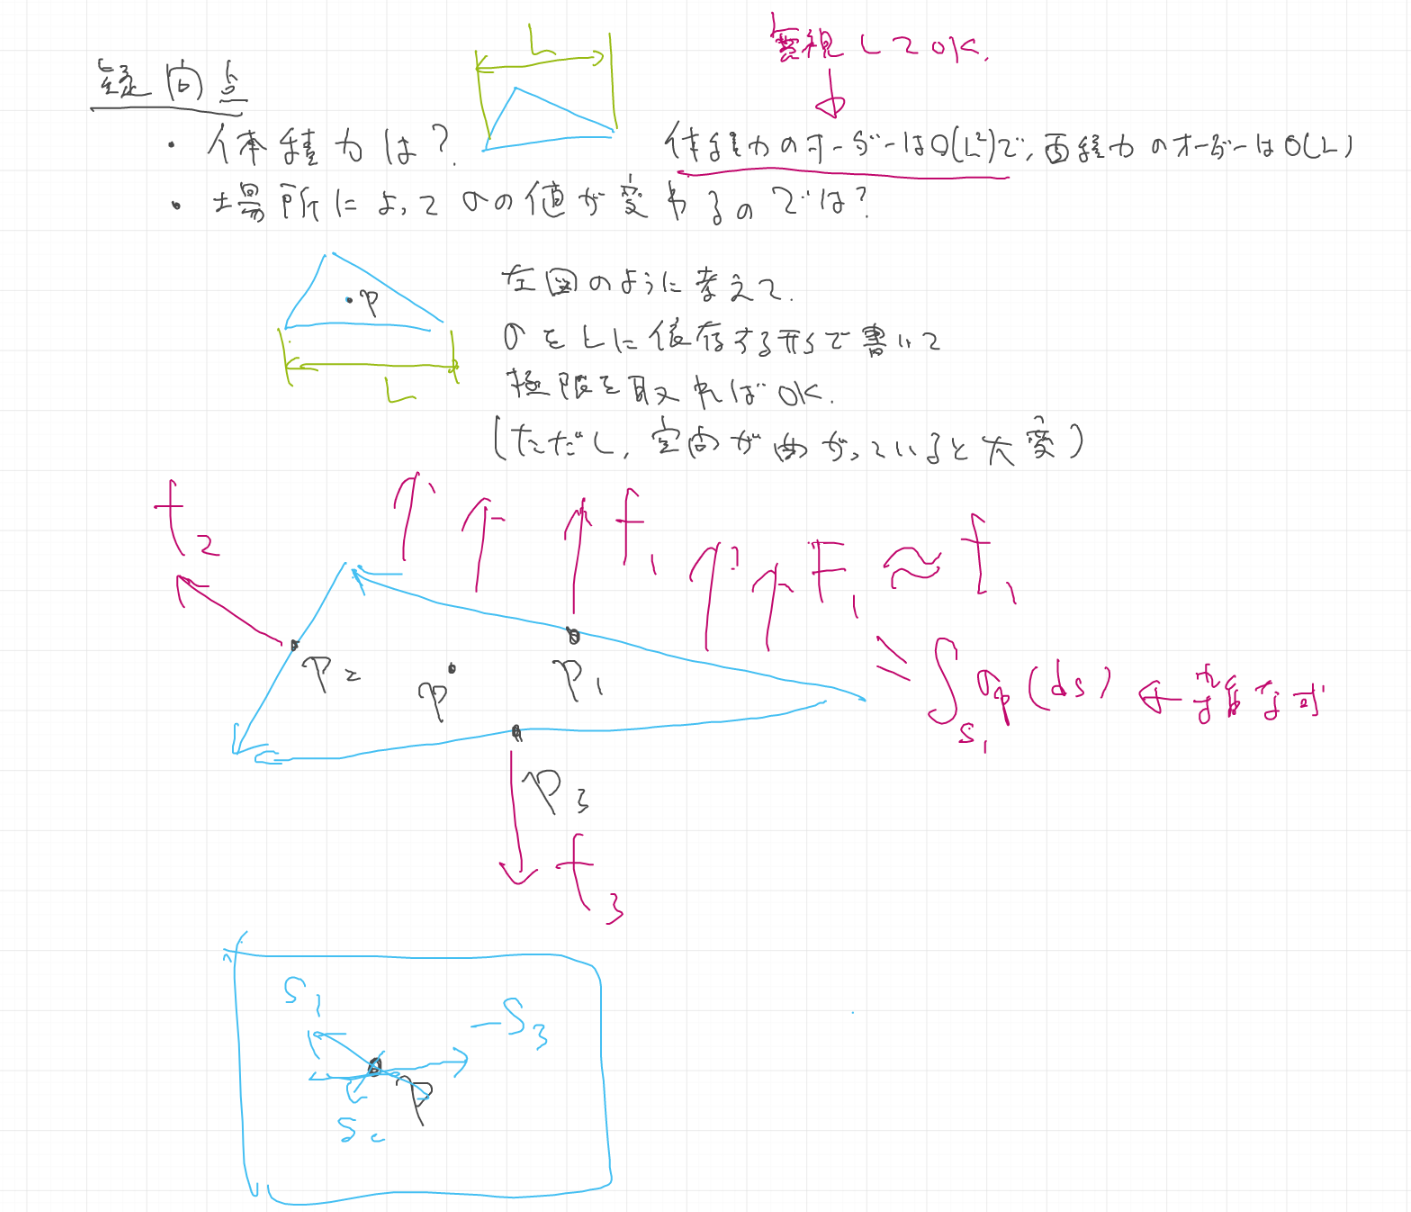 L
無視してOK.
疑問点
・体積力は?
体積力のオーダーはO(L²)で,面積力のオーダーはO(L)
・場所によってσの値が変わるのでは?
p
L
左図のように考えて.
σをLに依存する形で書いて
極限を取ればOK.
(ただし,空間が曲がっていると大変)
f₂
f₁
F₁ ≈ f₁
p₂
p
p₁
∫s₁ σp(ds) ←
p₃
f₃
S₁
-S₃
p
S₂